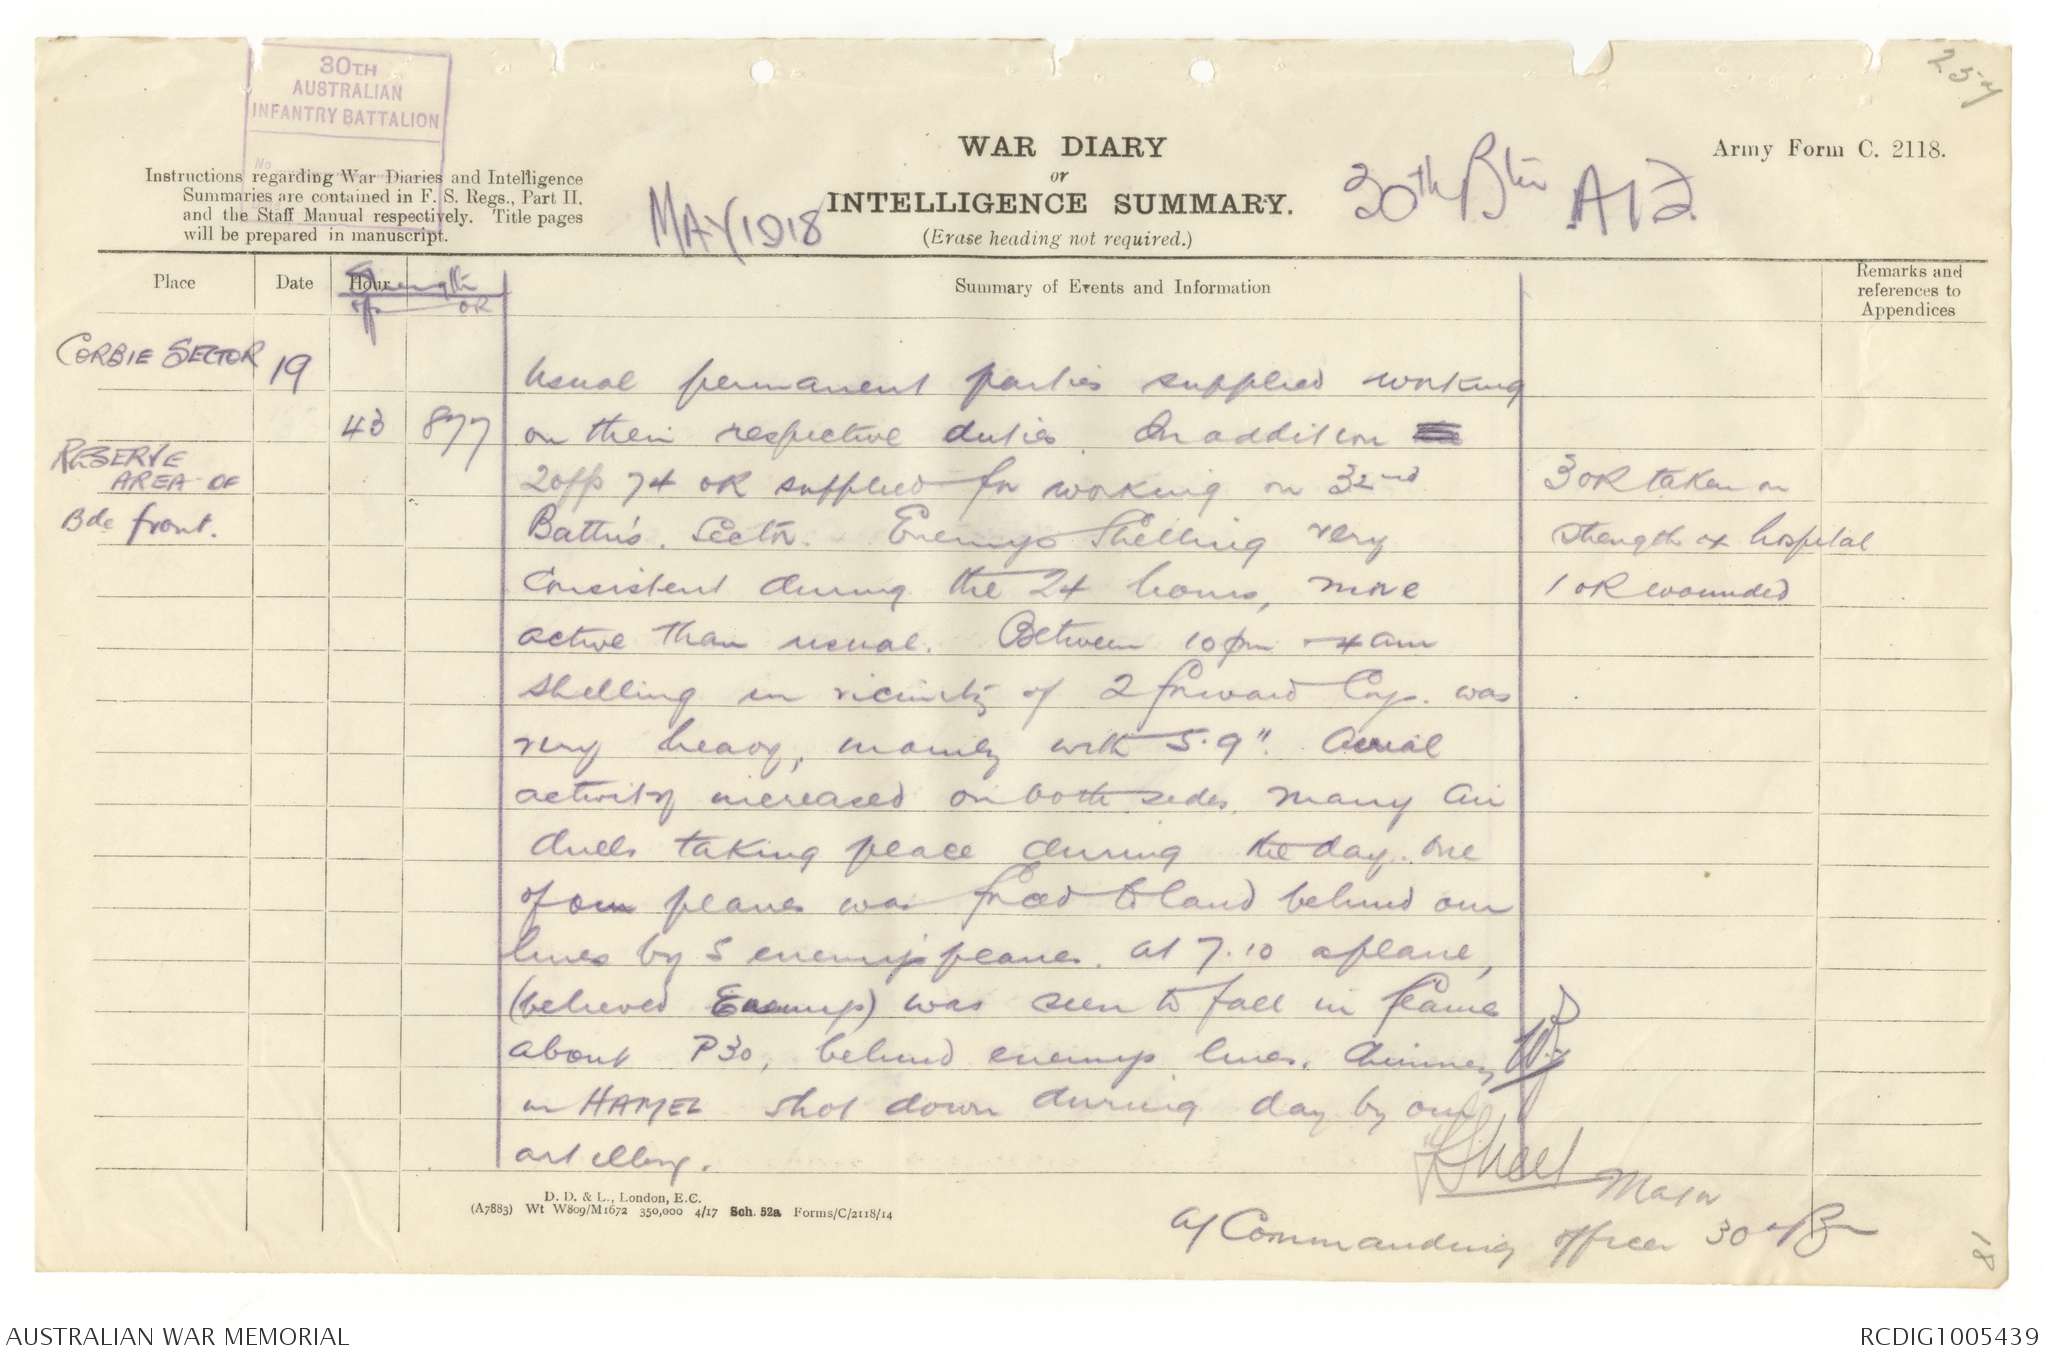 257
30TH
AUSTRALIAN
INFANTRY BATTALION
No
WAR DIARY
or
INTELLIGENCE SUMMARY.
(Erase heading not required.)
Army Form C. 2118.
Instructions regarding War Diaries and Intelligence
Summaries are contained in F. S. Regs., Part II.
and the Staff Manual respectively. Title pages
will be prepared in manuscript.
MAY 1918
30th Btn
Place
Date
Hour
Strength
off OR
Summary of Events and Information
Remarks and
references to
Appendices
CORBIE SECTOR 19
RESERVE
AREA OF
Bde front.
43 877
Usual permanent parties supplied working
on their respective duties. In addition
2 off 74 OR supplied for working on 32nd
Battn's. Sector. Enemys Shelling very
consistent during the 24 hours, more
active than usual. Between 10 pm - 4 am
shelling in vicinity of 2 forward Coys. was
very heavy, mainly with 5.9". Aerial
activity increased on both sides, many air
duels taking place during the day. One
of our planes was forced to land behind our
lines by 5 enemy planes. At 7.10 a plane,
(believed Enemy) was seen to fall in flames
about P30, behind enemys lines. Chimney
in HAMEL shot down during day by our
artillery.
3 OR taken on
strength ex hospital
1 OR wounded
Major
a/ Commanding officer 30th Bn
D. D. & L., London, E.C.
(A7883) Wt W809/M1672 350,000 4/17 Sch. 52a Forms/C/2118/14
18
AUSTRALIAN WAR MEMORIAL
RCDIG1005439